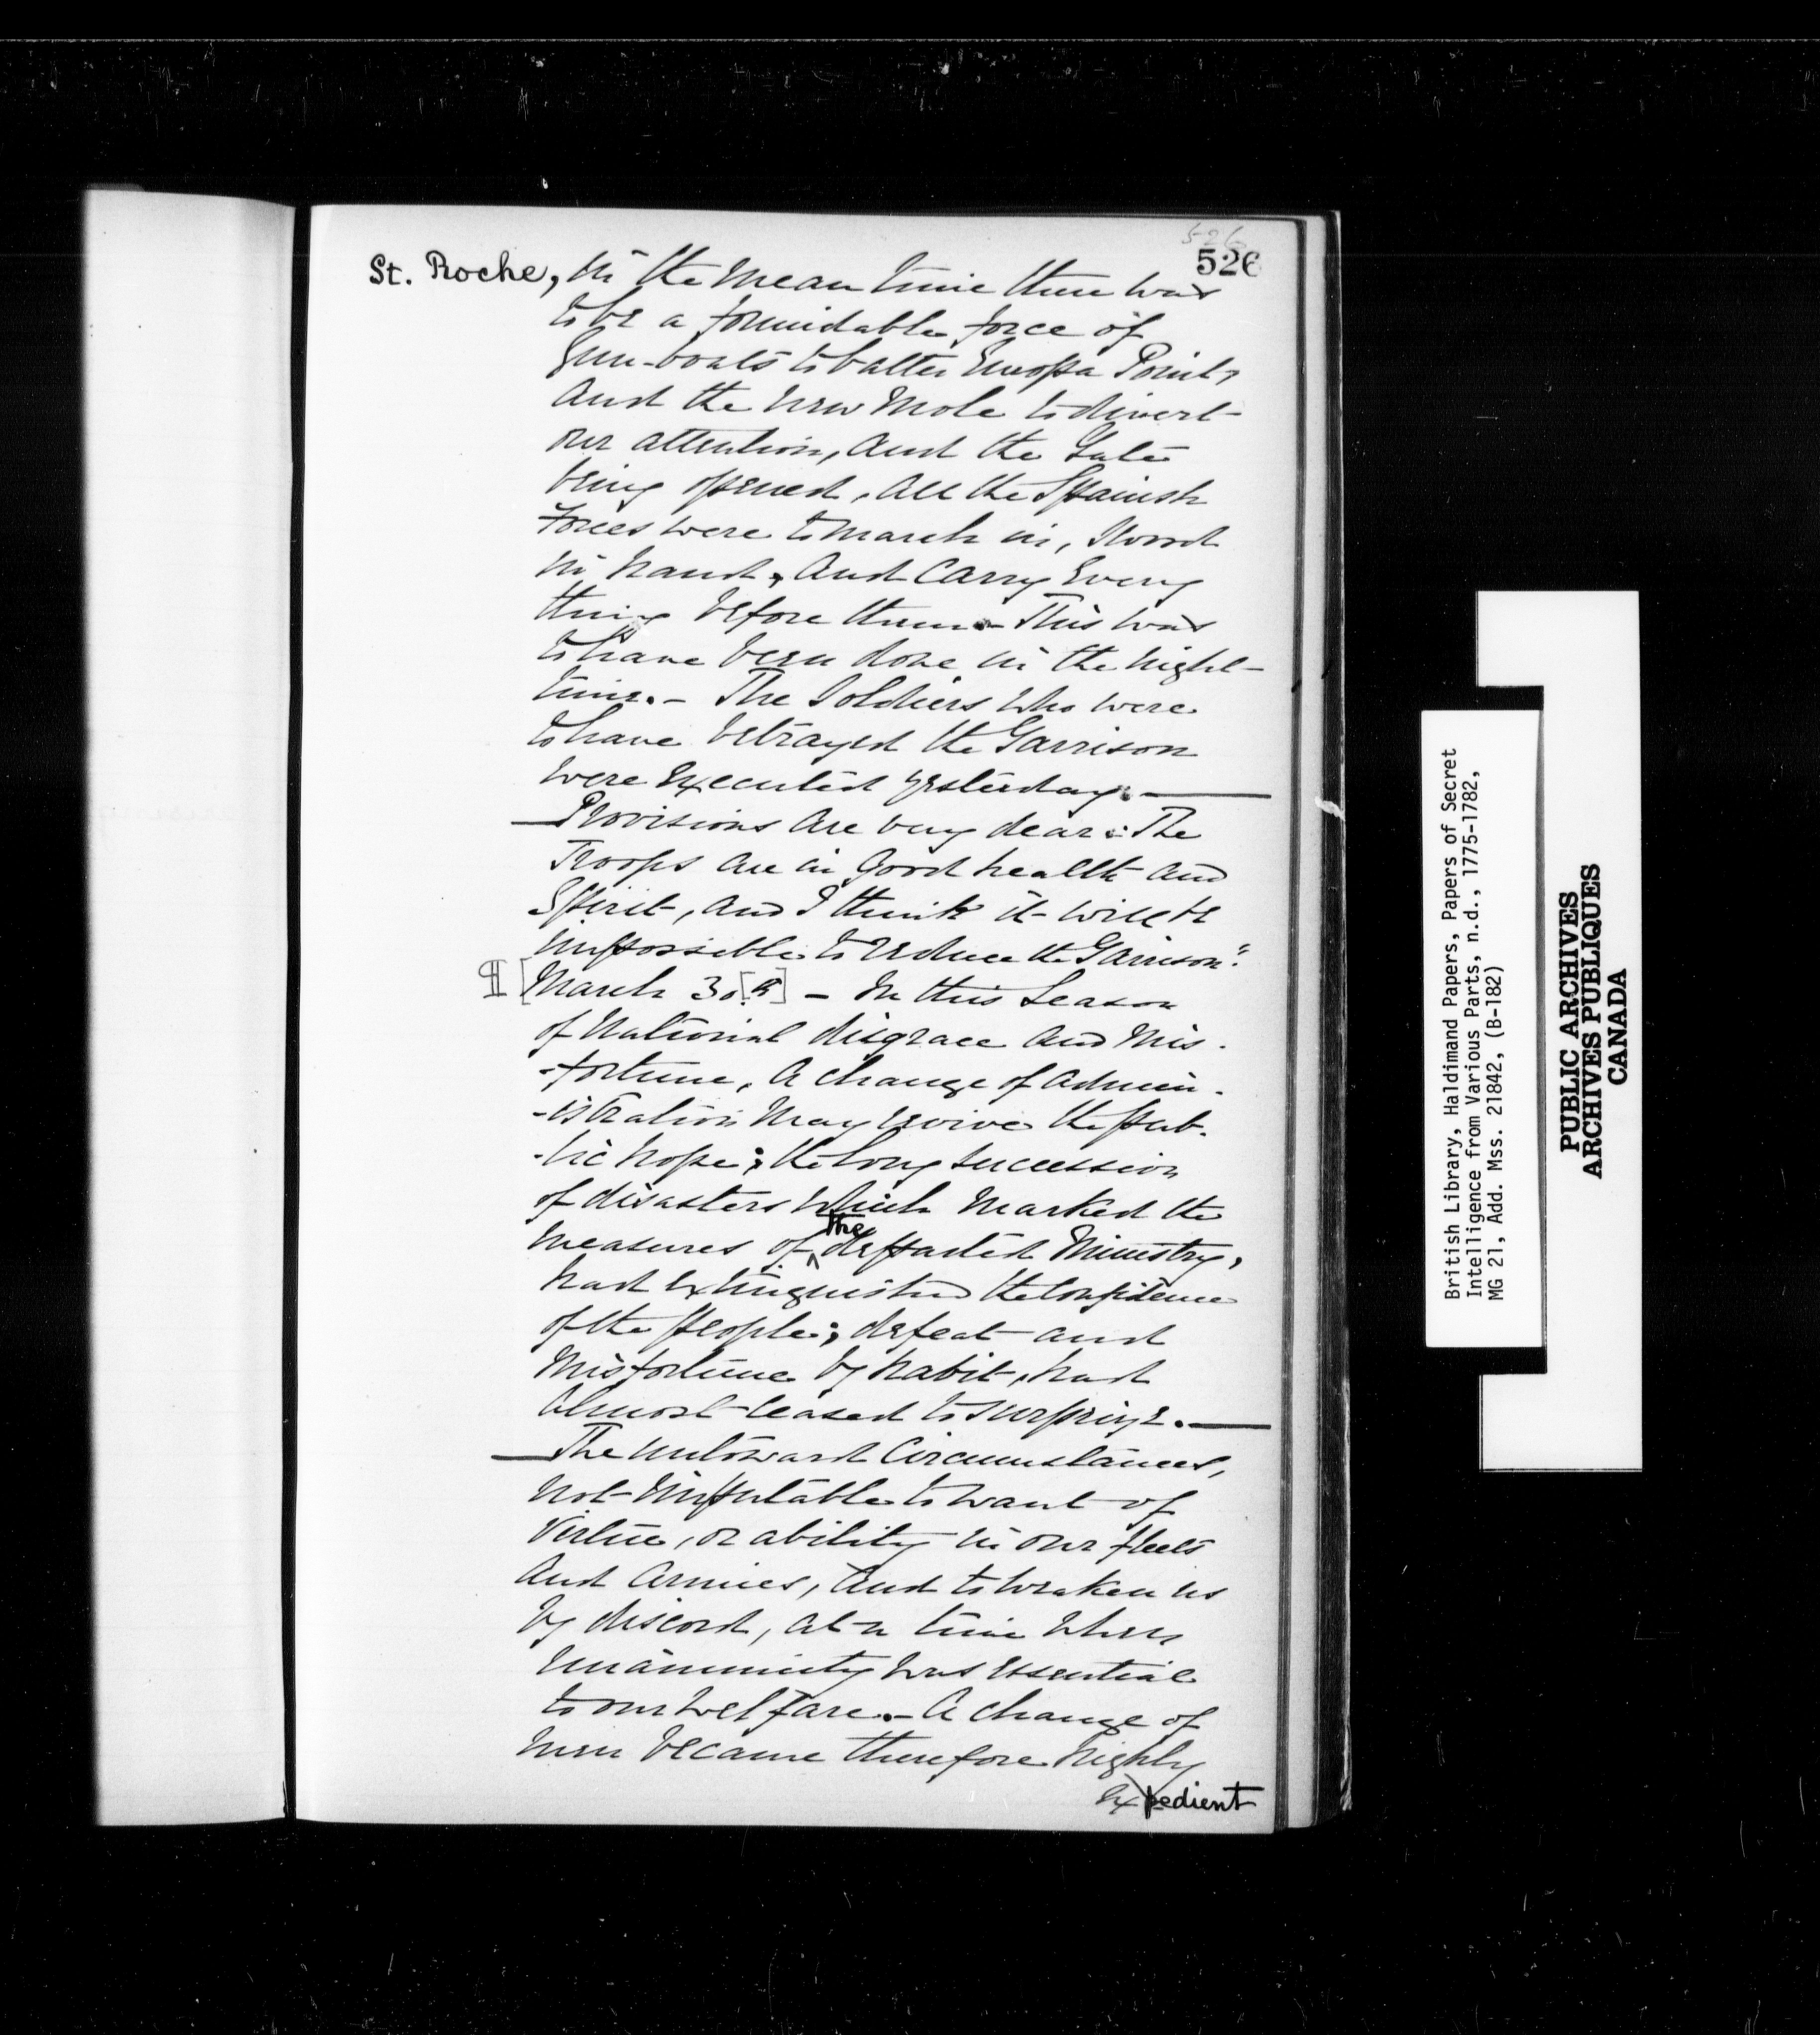 526
526
St. Roche, in the mean time there was
to be a formidable force of
Gun-boats to batter Europa Point,
and the new Mole to divert
our attention, and the Gate
being opened, all the Spanish
Forces were to march in, Sword
in hand, and carry every
thing before them. – This was
to have been done in the night-
time. – The Soldiers who were
to have betrayed the Garrison
were executed yesterday. —
— Provisions are very dear: The
Troops are in good health and
Spirit, and I think it will be
impossible to reduce the Garrison".
¶ [March 30[th] – In this Season
of National disgrace and Mis-
-fortune, a change of admin-
-istration may revive the pub-
-lic hope; the long succession
of disasters which marked the
The
measures of ^ departed Ministry,
had extinguished the confidence
of the people; defeat and
Misfortune by habit, had
almost ceased to surprize. —
— The untoward Circumstances,
not imputable to want of
Virtue, or ability in our fleets
and Armies, and to weaken us
by discord, at a time when
unanimity was essential
to our welfare. – A change of
men became therefore highly
expedient
British Library, Haldimand Papers, Papers of Secret
Intelligence from Various Parts, n.d., 1775-1782,
MG 21, Add. Mss. 21842, (B-182)
PUBLIC ARCHIVES
ARCHIVES PUBLIQUES
CANADA